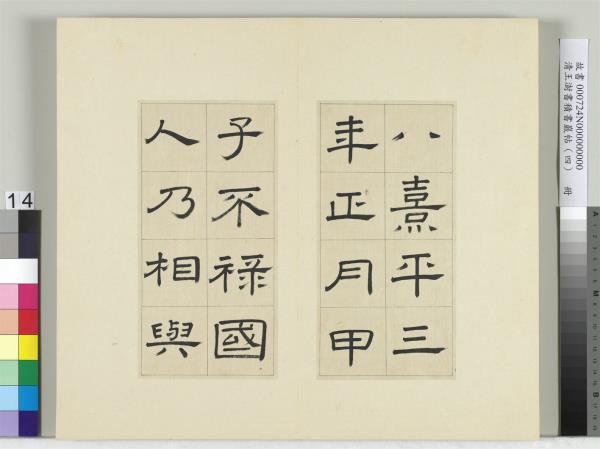 八熹平三
年正月甲
子不祿國
人乃相與
故書 000724N000000000
清王澍書積書巖帖（四） 冊
14